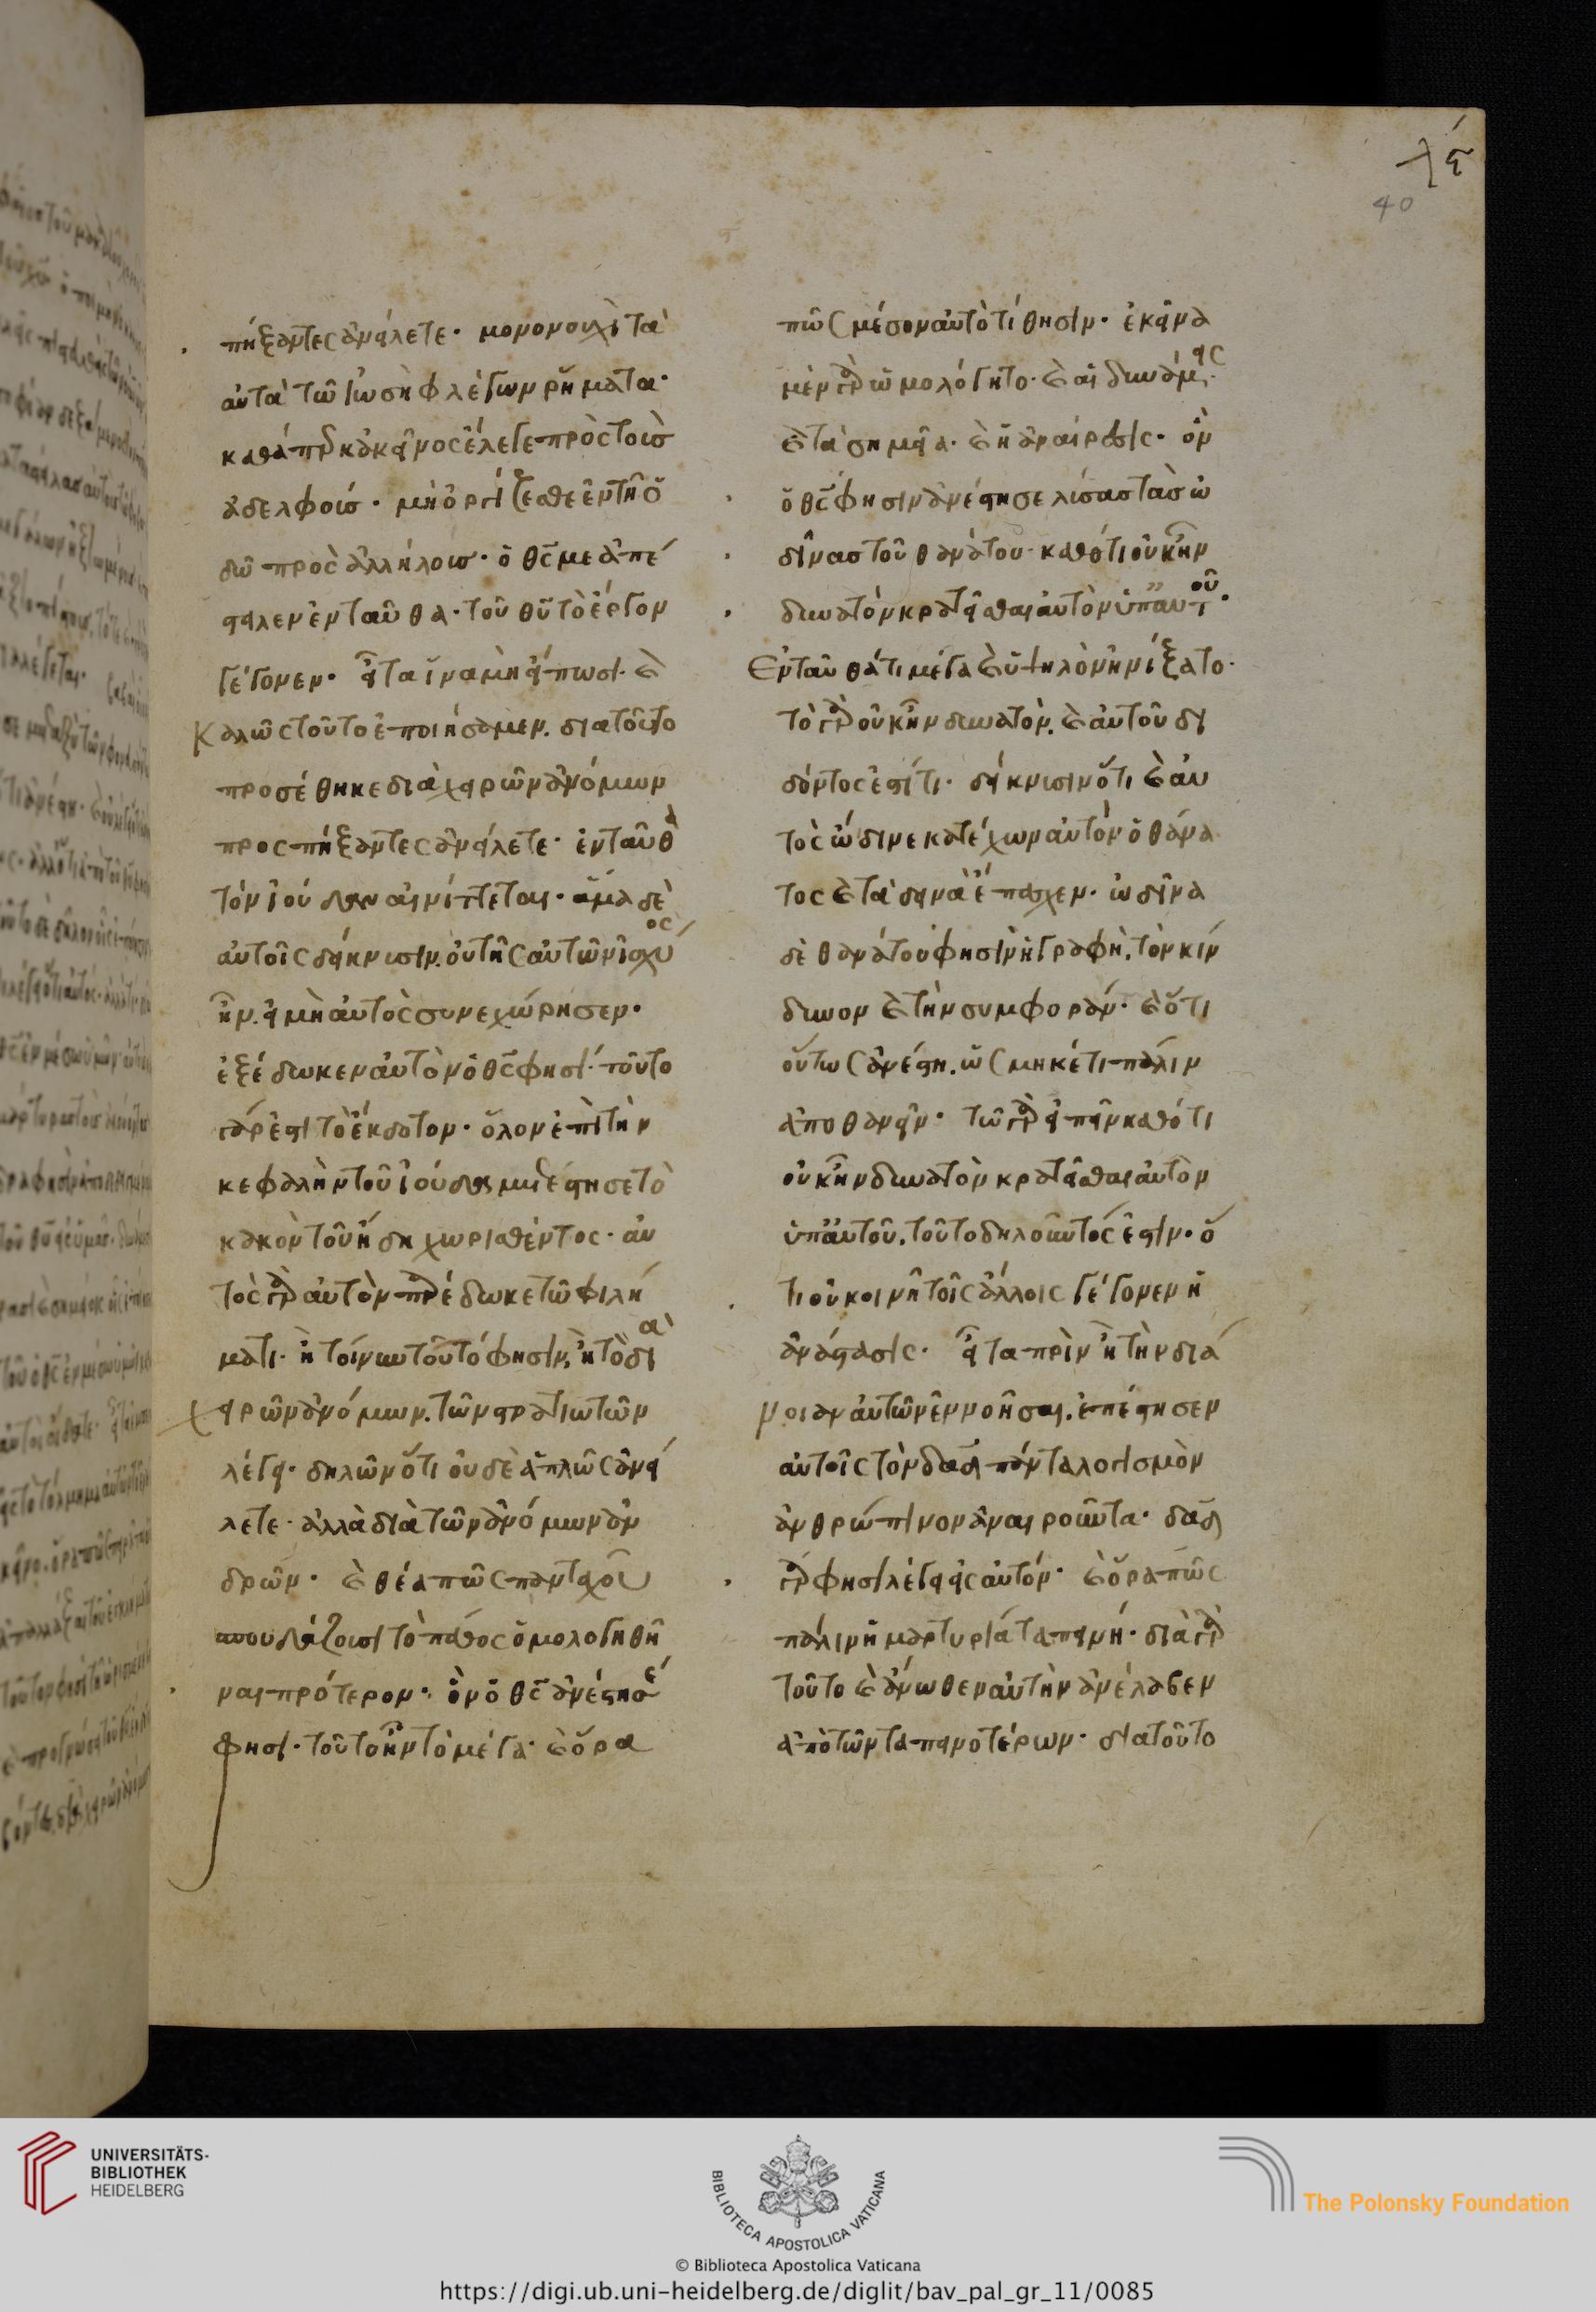 λϛ
40
πήξαντες ἀνείλετε· μονονουχὶ τὰ
αὐτὰ τῶ ἰωσὴφ λέγων ῥήματα·
καθάπερ κἀκεῖνος ἔλεγε πρὸς τοὺσ
ἀδελφούσ· μὴ ὀργίζεσθε ἐν τῆ ὁ
δῶ πρὸς ἀλλήλουσ· ὁ θς με ἀπέ
στειλεν ἐνταῦθα· τοῦ θυ τὸ ἔργον
γέγονεν· εἶτα ἵνα μὴ εἴπωσι· καὶ
καλῶς τοῦτο ἐποιήσαμεν. διατοῦτο
προσέθηκε διὰ χειρῶν ἀνόμων
προςπήξαντες ἀνείλετε· ἐνταῦθα
τὸν ἰούδαν αἰνίττεται· ἅμα δὲ
αὐτοῖς δείκνυσιν. οὐ τῆς αὐτῶν ἰσχύος
ἦν. εἰ μὴ αὐτὸς συνεχώρησεν·
ἐξέδωκεν αὐτὸν ὁ θς φησί· τοῦτο
γάρ ἐστι τὸ ἔκδοτον· ὅλον ἐπὶ τὴν
κεφαλὴν τοῦ ἰούδα μετέστησε τὸ
κακὸν τοῦ ἤδη χωρισθέντος· αὐ
τὸς γὰρ αὐτὸν παρέδωκε τῶ φιλή
ματι· ἢ τοίνυν τοῦτό φησιν, ἢ τὸ διὰ
χειρῶν ἀνόμων. τῶν στρατιωτῶν
λέγει· δηλῶν ὅτι οὐδὲ ἁπλῶς ἀνεί
λετε· ἀλλὰ διὰ τῶν ἀνόμων ἀν
δρῶν· καὶ θέα πῶς πανταχοῦ
σπουδάζουσι τὸ πάθος ὁμολογηθῆ
ναι πρότερον· ὃν ὁ θς ἀνέστησέ
φησι· τοῦτο ἦν τὸ μέγα· καὶ ὅρα
πῶς μέσον αὐτὸ τίθησιν· ἐκεῖνα
μὲν γὰρ ὡμολόγητο· καὶ αἱ δυνάμεις·
καὶ τὰ σημεῖα· καὶ ἡ ἀναίρεσις· ὃν
ὁ θς φησιν ἀνέστησε λύσας τὰσ ὠ
δῖνας τοῦ θανάτου· καθότι οὐκ ἦν
δυνατὸν κρατεῖσθαι αὐτὸν ὑπ' αὐτοῦ·
Ενταῦθά τι μέγα καὶ ὑψηλὸν ἠνίξατο·
τὸ γὰρ οὐκ ἦν δυνατόν. καὶ αὐτοῦ δι
δόντος ἐστί τι· δείκνυσιν ὅτι καὶ αὐ
τὸς ὤδινε κατέχων αὐτὸν ὁ θάνα
τος καὶ τὰ δεινὰ ἔπασχεν· ὠδῖνα
δὲ θανάτου φησὶν ἡ γραφὴ, τὸν κίν
δυνον καὶ τὴν συμφοράν· καὶ ὅτι
οὕτως ἀνέστη. ὡς μηκέτι πάλιν
ἀποθανεῖν· τῶ γὰρ εἰπεῖν καθότι
οὐκ ἦν δυνατὸν κρατεῖσθαι αὐτὸν
ὑπ' αὐτοῦ. τοῦτο δηλοῦντος ἐστιν· ὅ
τι οὐ κοινὴ τοῖς ἄλλοις γέγονεν ἡ
ἀνάστασις· εἶτα πρὶν ἢ τὴν διά
νοιαν αὐτῶν ἐννοῆσαι. ἐπέστησεν
αὐτοῖς τὸν δαδ πάντα λογισμὸν
ἀνθρώπινον ἀναιροῦντα· δαδ
γὰρ φησι λέγει εἰς αὐτόν· καὶ ὅρα πῶς
πάλιν ἡ μαρτυρία ταπεινή· διὰ γὰρ
τοῦτο καὶ ἄνωθεν αὐτὴν ἀνέλαβεν
ἀπὸ τῶν ταπεινοτέρων· διατοῦτο
UNIVERSITÄTS-
BIBLIOTHEK
HEIDELBERG
BIBLIOTECA APOSTOLICA VATICANA
© Biblioteca Apostolica Vaticana
The Polonsky Foundation
https://digi.ub.uni-heidelberg.de/diglit/bav_pal_gr_11/0085